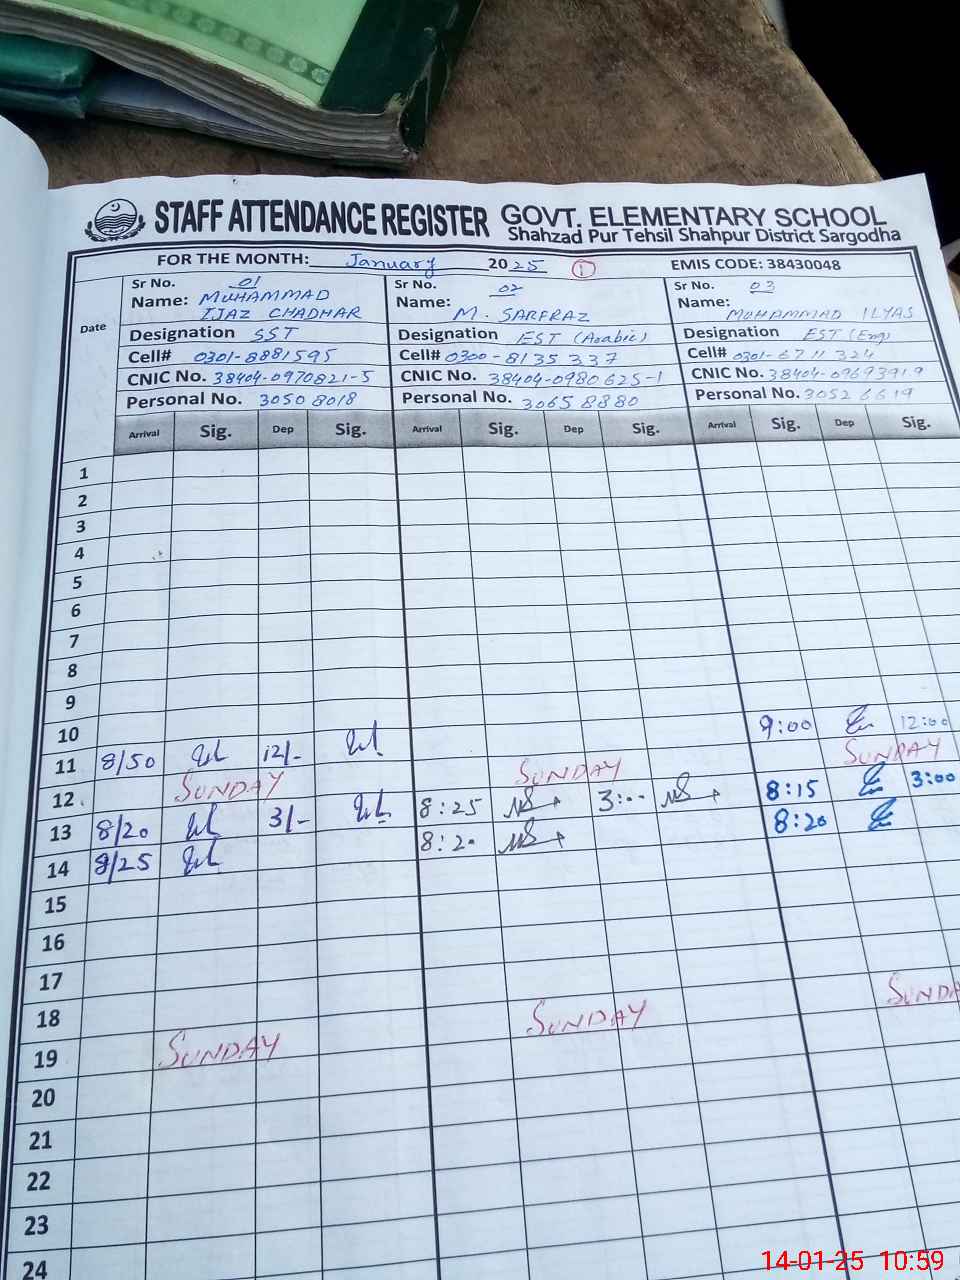 STAFF ATTENDANCE REGISTER GOVT. ELEMENTARY SCHOOL
Shahzad Pur Tehsil Shahpur District Sargodha
FOR THE MONTH: January 2025 1 EMIS CODE: 38430048
Sr No. 01 Sr No. 02 Sr No. 03
Name: MUHAMMAD IJAZ CHADHAR Name: M. SARFRAZ Name: MUHAMMAD ILYAS
Date
Designation SST Designation EST (Arabic) Designation EST (Eng)
Cell# 0301-8881595 Cell# 0300-8135337 Cell# 0301-6711324
CNIC No. 38404-0970821-5 CNIC No. 38404-0980625-1 CNIC No. 38404-09693919
Personal No. 30508018 Personal No. 30658880 Personal No. 30526619
Arrival Sig. Dep Sig. Arrival Sig. Dep Sig. Arrival Sig. Dep Sig.
1
2
3
4
5
6
7
8
9
10
11 8/50 12/- 9:00 12:00
12 SUNDAY SUNDAY SUNDAY
13 8/20 3/- 8:25 3:00 8:15 3:00
14 8/25 8:20 8:20
15
16
17
18
19 SUNDAY SUNDAY SUNDA
20
21
22
23
24
14-01-25 10:59